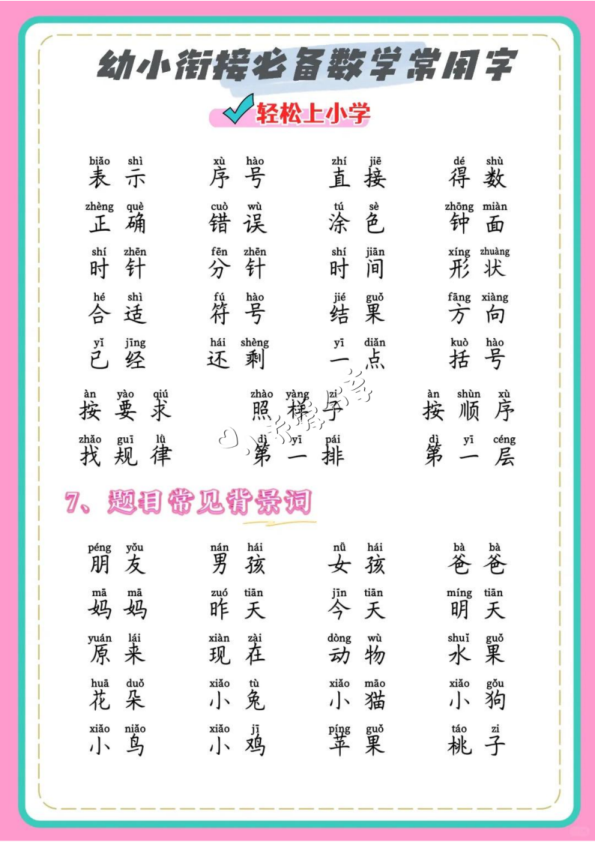 幼小衔接必备数学常用字
轻松上小学
biǎo shì xù hào zhí jiē dé shù
表示 序号 直接 得数
zhèng què cuò wù tú sè zhōng miàn
正确 错误 涂色 钟面
shí zhēn fēn zhēn shí jiān xíng zhuàng
时针 分针 时间 形状
hé shì fú hào jié guǒ fāng xiàng
合适 符号 结果 方向
yǐ jīng hái shèng yī diǎn kuò hào
已经 还剩 一点 括号
àn yào qiú zhào yàng zi àn shùn xù
按要求 照样子 按顺序
zhǎo guī lǜ dì yī pái dì yī céng
找规律 第一排 第一层
7、题目常见背景词
péng yǒu nán hái nǚ hái bà bà
朋友 男孩 女孩 爸爸
mā mā zuó tiān jīn tiān míng tiān
妈妈 昨天 今天 明天
yuán lái xiàn zài dòng wù shuǐ guǒ
原来 现在 动物 水果
huā duǒ xiǎo tù xiǎo māo xiǎo gǒu
花朵 小兔 小猫 小狗
xiǎo niǎo xiǎo jī píng guǒ táo zi
小鸟 小鸡 苹果 桃子